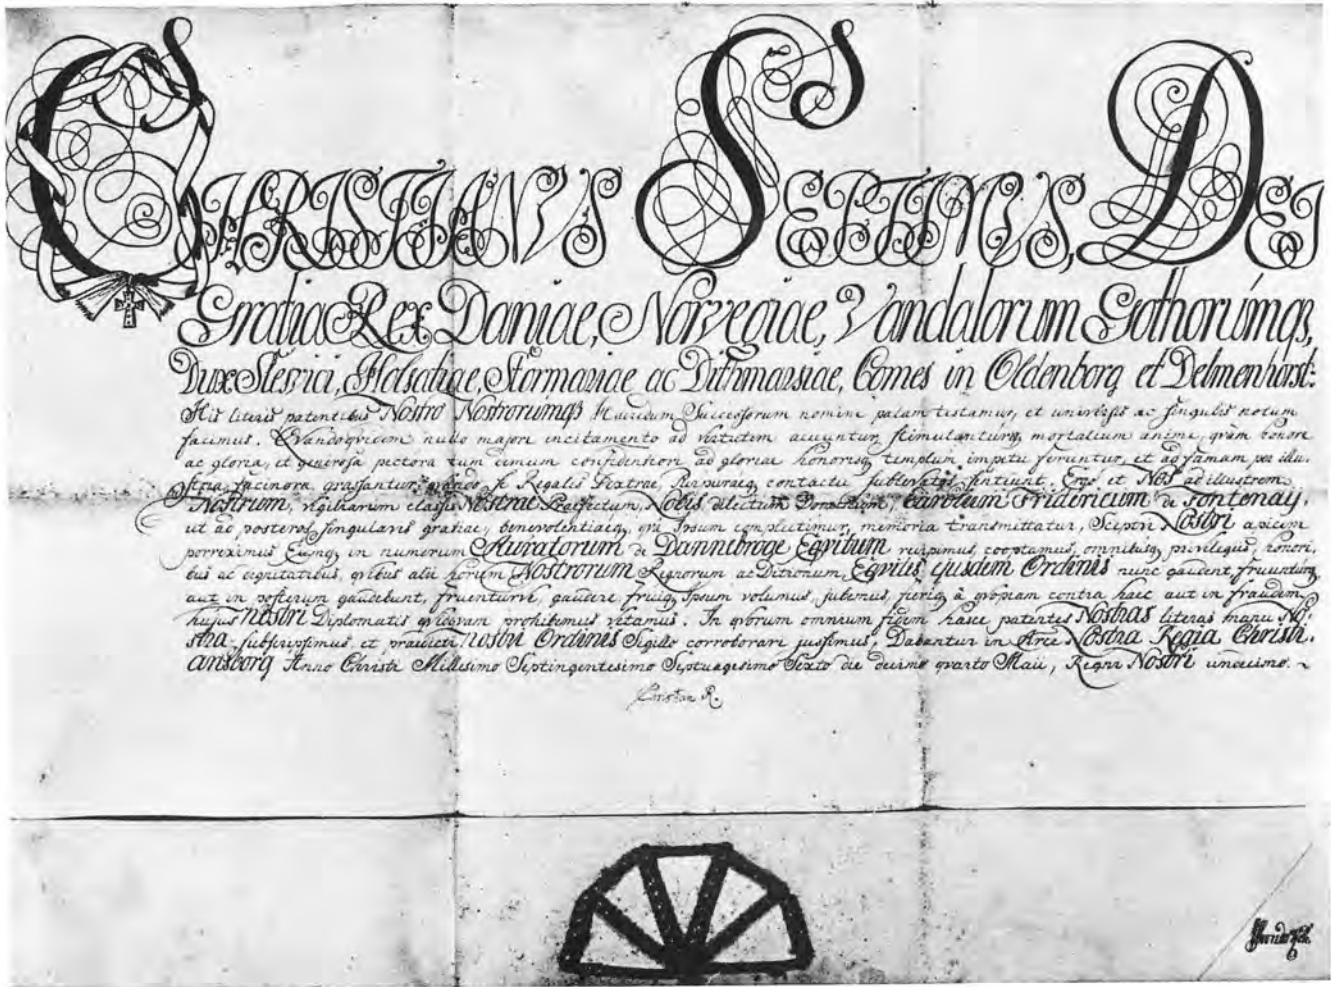 CHRISTIANVS SEPTIMVS, DEI
Gratia Rex Daniae, Norvegiae, Vandalorum Gothorúmqз,
Dux Slesvici, Holsatiae, Stormariae ac Dithmarsiae, Comes in Oldenborg et Delmenhorst:
His literis patentibus Nostro Nostrorumqз Haeredum Successorum nomine palam testamur, et universis ac singulis notum
facimus. Qvandoqvidem nullo majori incitamento ad virtutem acuuntur, stimulanturqз mortalium animi, qvàm honore
ac gloria, et generosa pectora tum demum confidentiori ad gloriae honorisqз templum impetu feruntur, et ad famam per illu-
stria facinora grassantur, qvando se Regalis Dextrae, Purpuraeqз contactu sublevatos sentiunt. Ergo et Nos ad illustrem
Nostrum, vigiliarum classis Nostrae Praefectum, Nobis dilectum Dominum, Carolum Fridericum de Fontenay,
ut ad posteros singularis gratiae, benevolentiaeqз, qvâ Ipsum complectimur, memoria transmittatur, Sceptri Nostri apicem
porreximus Eumqз in numerum Auratorum de Dannebroge Eqvitum recipimus, cooptamus, omnibusqз privilegiis, honori-
bus ac dignitatibus, qvibus alii horum Nostrorum Regnorum ac Ditionum, Eqvites ejusdem Ordinis nunc gaudent, fruunturqз
aut in posterum gaudebunt, fruenturve, gaudere fruiqз Ipsum volumus, jubemus, fieriqз à qvoqvam contra haec aut in fraudem
hujus Nostri Diplomatis qvidqvam prohibemus vetamus. In qvorum omnium fidem hasce patentes Nostras literas manu No-
stra subscripsimus, et praedicti Nostri Ordinis Sigillo corroborari jussimus. Dabantur in Arce Nostra Regia Christi-
ansborg Anno Christi Millesimo Septingentesimo Septuagesimo Sexto die decimo qvarto Maii, Regni Nostri undecimo.
Christian R.